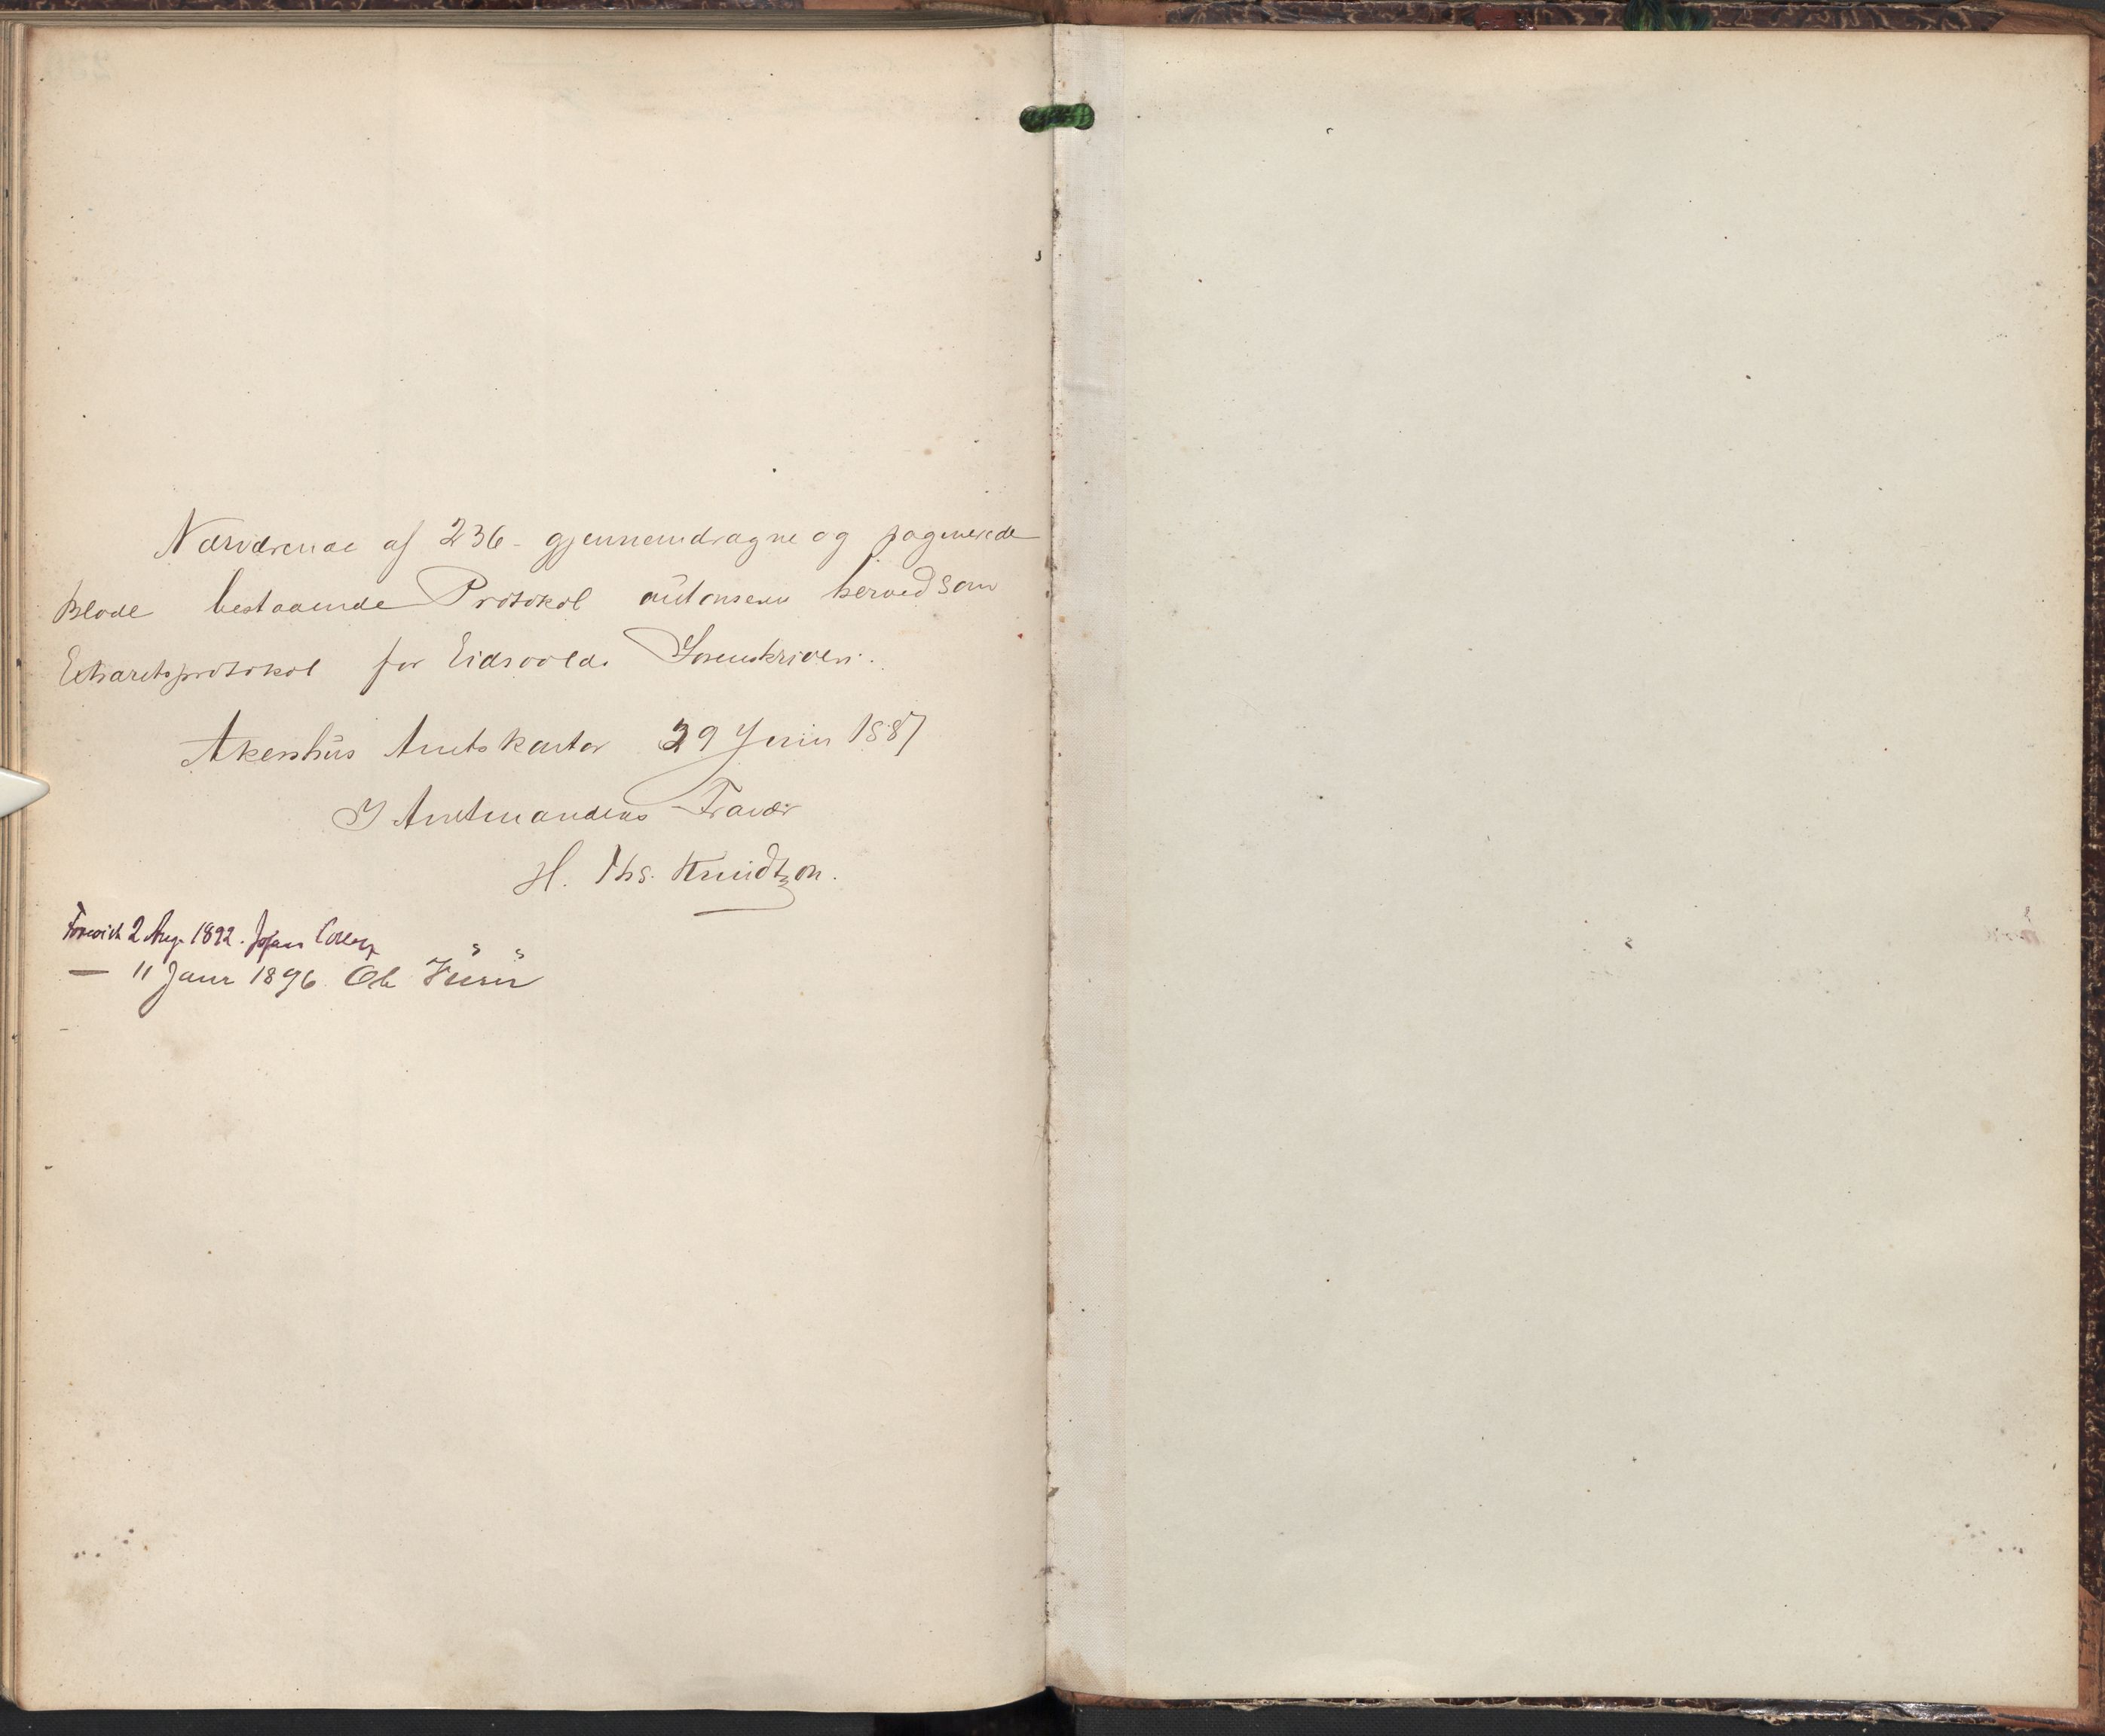 Nærværende af 236 - gjennemdragne og paginerede
Blade bestaaende Protokol autoriseres herved som
Extraretsprotokol for Eidsvolds Sorenskriveri.
Akershus Amtskontor 29 Juni 1887
I Amtmandens Fravær
H. Ths. Knudtzon.
Forevist 2 Aug. 1892. Johan Collett
— 11 Janr 1896 Ole